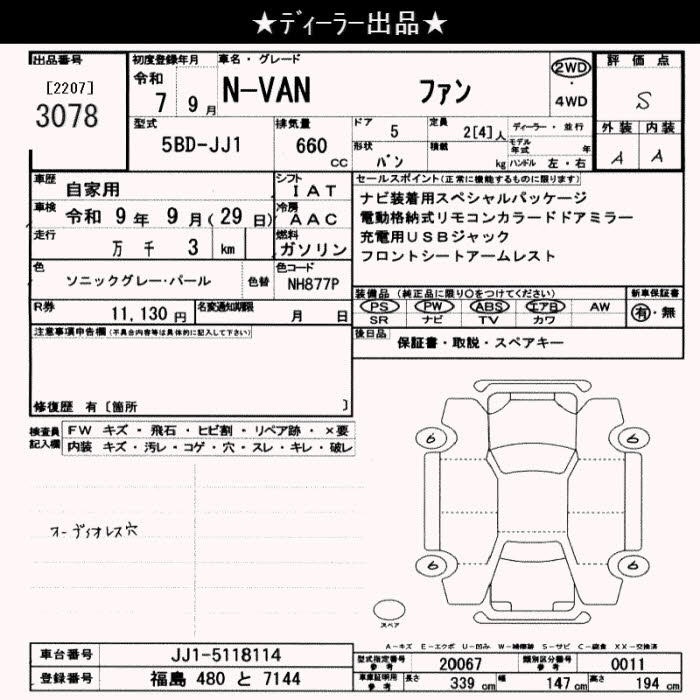 ★ディーラー出品★
出品番号
[2207]
3078
初度登録年月
令和
7 9月
車名・グレード
N-VAN ファン
2WD
・
4WD
評価点
S
外装 内装
A A
型式
5BD-JJ1
排気量
660
CC
ドア
5
定員
2[4]人
ディーラー・並行
形状
バン
積載
kg
モデル年式 年
ハンドル 左・右
車歴
自家用
シフト
IAT
車検
令和 9年 9月(29日)
冷房
AAC
走行
万 千 3 km
燃料
ガソリン
色
ソニックグレー・パール
色替
色コード
NH877P
R券
11,130円
名変通知期限
月 日
セールスポイント(正常に機能するものに限ります)
ナビ装着用スペシャルパッケージ
電動格納式リモコンカラードドアミラー
充電用USBジャック
フロントシートアームレスト
装備品(純正品に限り〇をつけてください)
PS PW ABS エアB AW
SR ナビ TV カワ
新車保証書
有・無
後日品
保証書・取説・スペアキー
注意事項申告欄(不具合内容等は具体的に記入して下さい)
修復歴 有〔箇所 〕
検査員
記入欄
FW キズ・飛石・ヒビ割・リペア跡・×要
内装 キズ・汚レ・コゲ・穴・スレ・キレ・破レ
オーディオレス穴
6 6
6 6
スペア
A-キズ E-エクボ U-凹み W-補修跡 S-サビ C-腐食 XX-交換済
車台番号
JJ1-5118114
登録番号
福島 480 と 7144
型式指定番号
参考
20067
類別区分番号
参考
0011
車庫証明用
参考
長さ
339 cm
幅
147 cm
高さ
194 cm